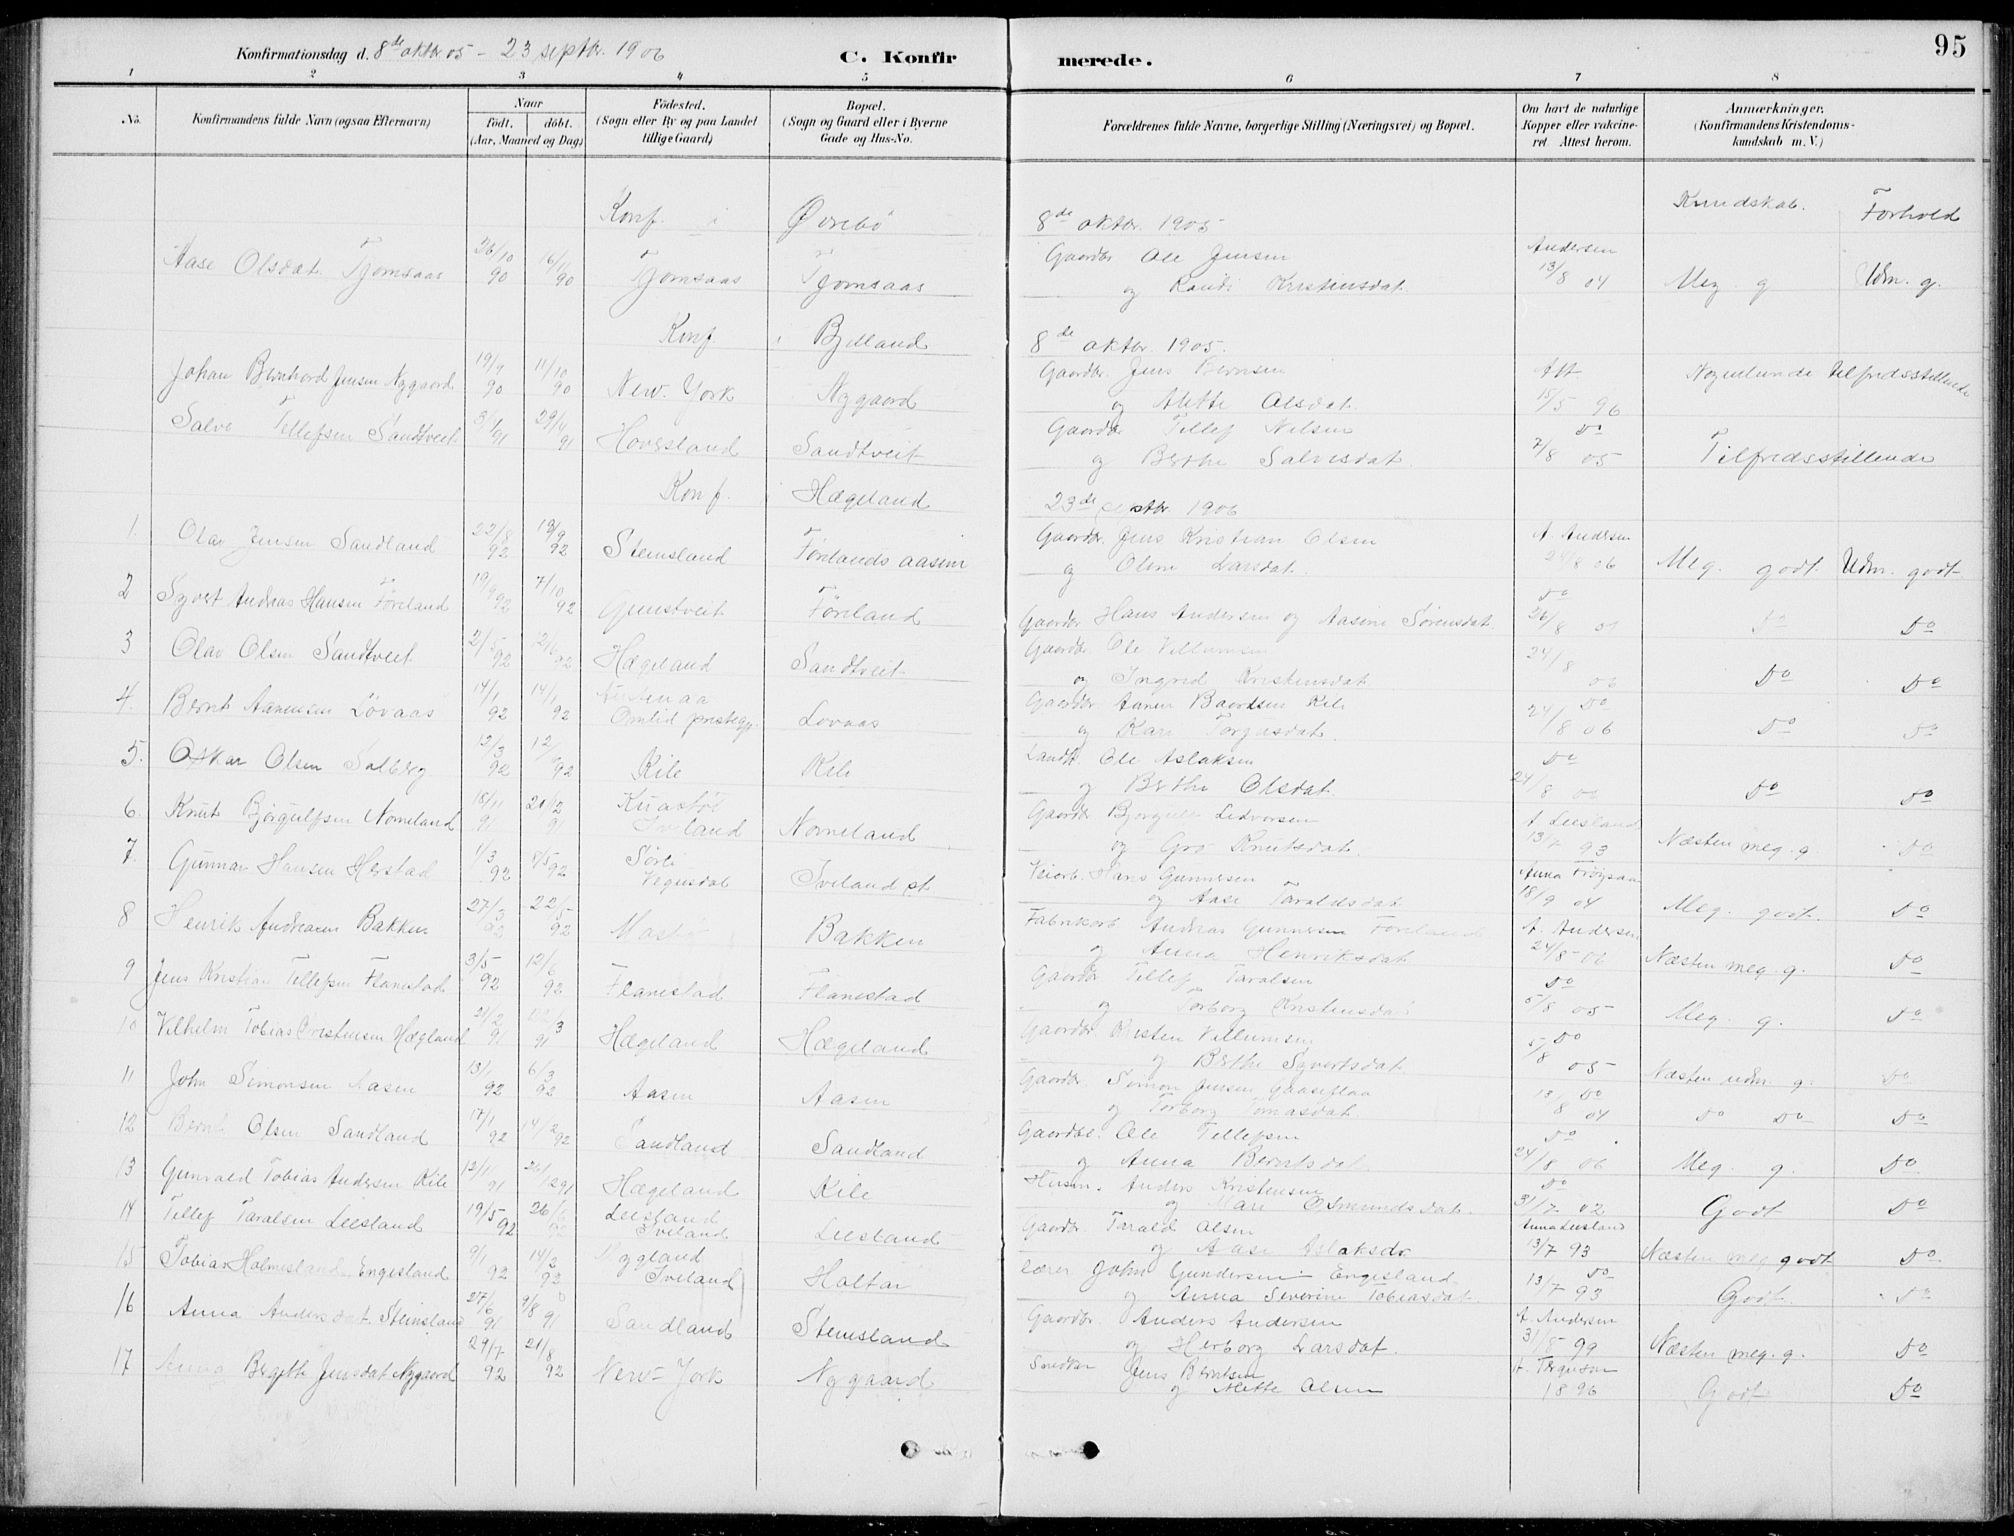 95
Konfirmationsdag d. 8de oktbr. 05 – 23 septbr. 1906
C. Konfirmerede.
1 2 3 4 5 6 7 8
No. Konfirmandens fulde Navn (ogsaa Efternavn) Naar födt. döbt. (Aar, Maaned og Dag) Födested. (Sogn eller By og paa Landet tillige Gaard) Bopæl. (Sogn og Gaard eller i Byerne Gade og Hus-No. Forældrenes fulde Navne, borgerlige Stilling (Næringsvei) og Bopæl. Om havt de naturlige Kopper eller vakcineret. Attest herom. Anmærkninger. (Konfirmandens Kristendomskundskab m. V.)
Kundskab. Forhold
Konf. i Øvrebö 8de oktbr. 1905
Aase Olsdat. Tjomsaas 26/10 90 16/11 90 Tjomsaas Tjomsaas Gaardbr. Ole Jensen Andersen
og Randi Kristensdat. 13/8 04 Meg. g Udm. g.
Konf. i Bjelland 8de oktbr. 1905.
Johan Bernhard Jensen Nygaard 19/9 90 11/10 90 New-York Nygaard Gaardbr. Jens Berntsen Att Nogenlunde tilfredsstillende
og Mette Olsdat. 15/5 96
Salve Tellefsen Sandtveit 3/1 91 29/4 91 Hovesland Sandtveit Gaardbr Tellef Nilsen Do
og Berthe Salvesdat. 7/8 05 Tilfredsstillende
Konf. i Hægeland 23de septbr. 1906
1 Olav Jensen Sandland 22/8 92 19/9 92 Steinsland Förlandsaasen Gaardbr. Jens Kristian Olsen A. Andersen
og Olene Larsdat. 24/8 06 Meg. godt. Udm. godt
2 Syvert Andreas Hansen Föreland 19/9 92 7/10 92 Gumstveit Föreland Gaardbr Hans Andersen og Aasine Sörensdat. Do 26/8 Do Do
3 Olav Olsen Sandtveit 2/5 92 2/6 92 Hægeland Sandtveit Gaardbr Ole Villumsen 24/8
og Ingrid Kristensdat 06 Do Do
4. Bernt Aanensen Lövaas 14/1 92 92 Omlid prestegj. Lovaas Gaardbr. Aanen Baardsen Kile Do
og Kari Torjusdat. 24/8 06 Do Do
5. Oskar Olsen Solberg 12/3 92 92 Kile Kile Ole Aslaksen Do
og Berthe Olsdat. 24/8 06 Do Do
6. Knut Bjørgulfsen Nomeland 18/11 91 91 Iveland Nomeland Gaardbr Bjorgulf Ledvorsen A. Leesland
og Gro Knutsdat. 13/7 93 Næsten meg. g Do
7. Gunnar Hansen Herstad 1/3 92 8/5 92 Vegusdal Iveland st. Veiarb. Hans Gunnersen Anna Frøysaa
og Aase Taraldsdat 18/9 04 Meg. godt. Do
8 Henrik Andreasen Bakken 27/3 92 22/5 92 Bakken Fabrikarb Andreas Gunnersen Föreland A. Andersen
og Anna Henriksdat 24/8 06 Næsten meg. g. Do
9 Jens Kristian Tellefsen Flanestad 3/5 92 12/6 92 Flanestad Flanestad Gaardbr Tellef Taralsen Do
og Torborg Kristensdat 5/8 05 Meg. g. Do
10 Vilhelm Tobias Kristensen Hægland 91 91 Hægeland Hægeland Gaardbr Kristen Villumsen Do
og Berthe Syvertsdat 5/8 05 Næsten udm. g. Do
11 John Simonsen Aasen 13/1 92 6/3 92 Aasen Aasen Gaardbr. Simon Jensen Gaaseflaa Do
og Torborg Tomasdat. 13/8 04 Do Do Do
12 Bernt Olsen Sandland 17/1 92 14/2 92 Sandland Sandland Gaardbr. Ole Tellefsen Do
og Anna Berntsdat 24/8 06 Meg. g. Do
13 Gunvald Tobias Andersen Kile 12/11 91 91 Hægeland Kile Husm. Anders Kristensen Do
og Mari Osmundsdat. 31/7 02 Godt Do
14 Tellef Taralsen Leesland 19/5 92 Leesland Iveland Leesland Gaardbr Tarald Olsen Anna Leesland
og Aase Aslaksdr 13/7 93 Næsten meg godt Do
15 Tobias Holmesland Engesland 9/1 92 14/2 92 Iveland Haltar Lærer John Gundersen Engesland Do
og Anna Severine Tobiasdat. 13/7 93 Godt. Do
16 Anna Andersdat. Steinsland 27/6 91 9/8 91 Sandland Steinsland Gaardbr Anders Andersen A. Andersen
og Herborg Larsdat. 31/5 99 Næsten meg. g. Do
17 Anna Bergitte Jensdat Nygaard 29/7 92 21/8 92 New-York Nygaard Jens Berntsen
og Mette Olsen 1896 Godt Do